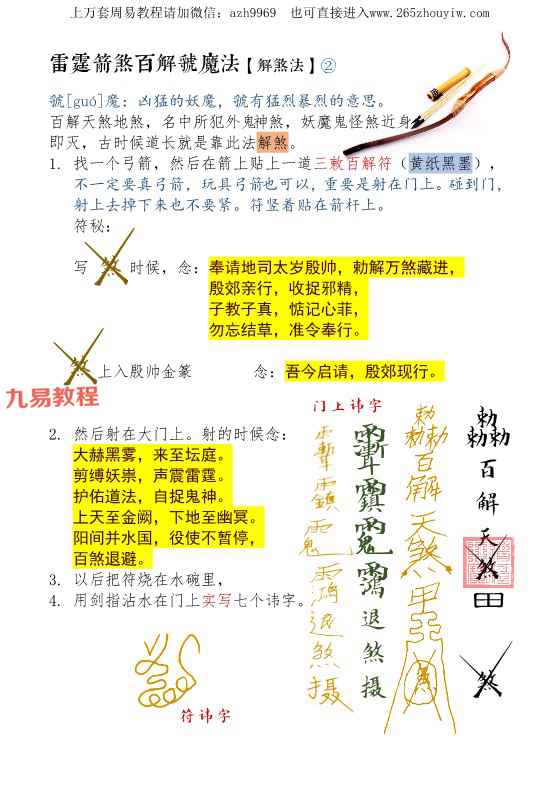 上万套周易教程请加微信：azh9969　也可直接进入www.265zhouyiw.com
雷霆箭煞百解虢魔法【解煞法】②
虢[guó]魔：凶猛的妖魔，虢有猛烈暴烈的意思。
百解天煞地煞，名中所犯外鬼神煞，妖魔鬼怪煞近身
即灭，古时候道长就是靠此法解煞。
1. 找一个弓箭，然后在箭上贴上一道三敕百解符（黄纸黑墨），
不一定要真弓箭，玩具弓箭也可以，重要是射在门上。碰到门，
射上去掉下来也不要紧。符竖着贴在箭杆上。
符秘：
写 煞 时候，念：奉请地司太岁殷帅，勅解万煞藏进，
殷郊亲行，收捉邪精，
子教子真，惦记心菲，
勿忘结草，准令奉行。
煞 上入殷帅金篆 念：吾今启请，殷郊现行。
九易教程
2. 然后射在大门上。射的时候念：
大赫黑雾，来至坛庭。
剪缚妖祟，声震雷霆。
护佑道法，自捉鬼神。
上天至金阙，下地至幽冥。
阳间并水国，役使不暂停，
百煞退避。
3. 以后把符烧在水碗里，
4. 用剑指沾水在门上实写七个讳字。
符讳字
门上讳字
退煞摄
退煞摄
勅勅勅百解天煞甲
煞
勅勅勅百解天煞田
煞